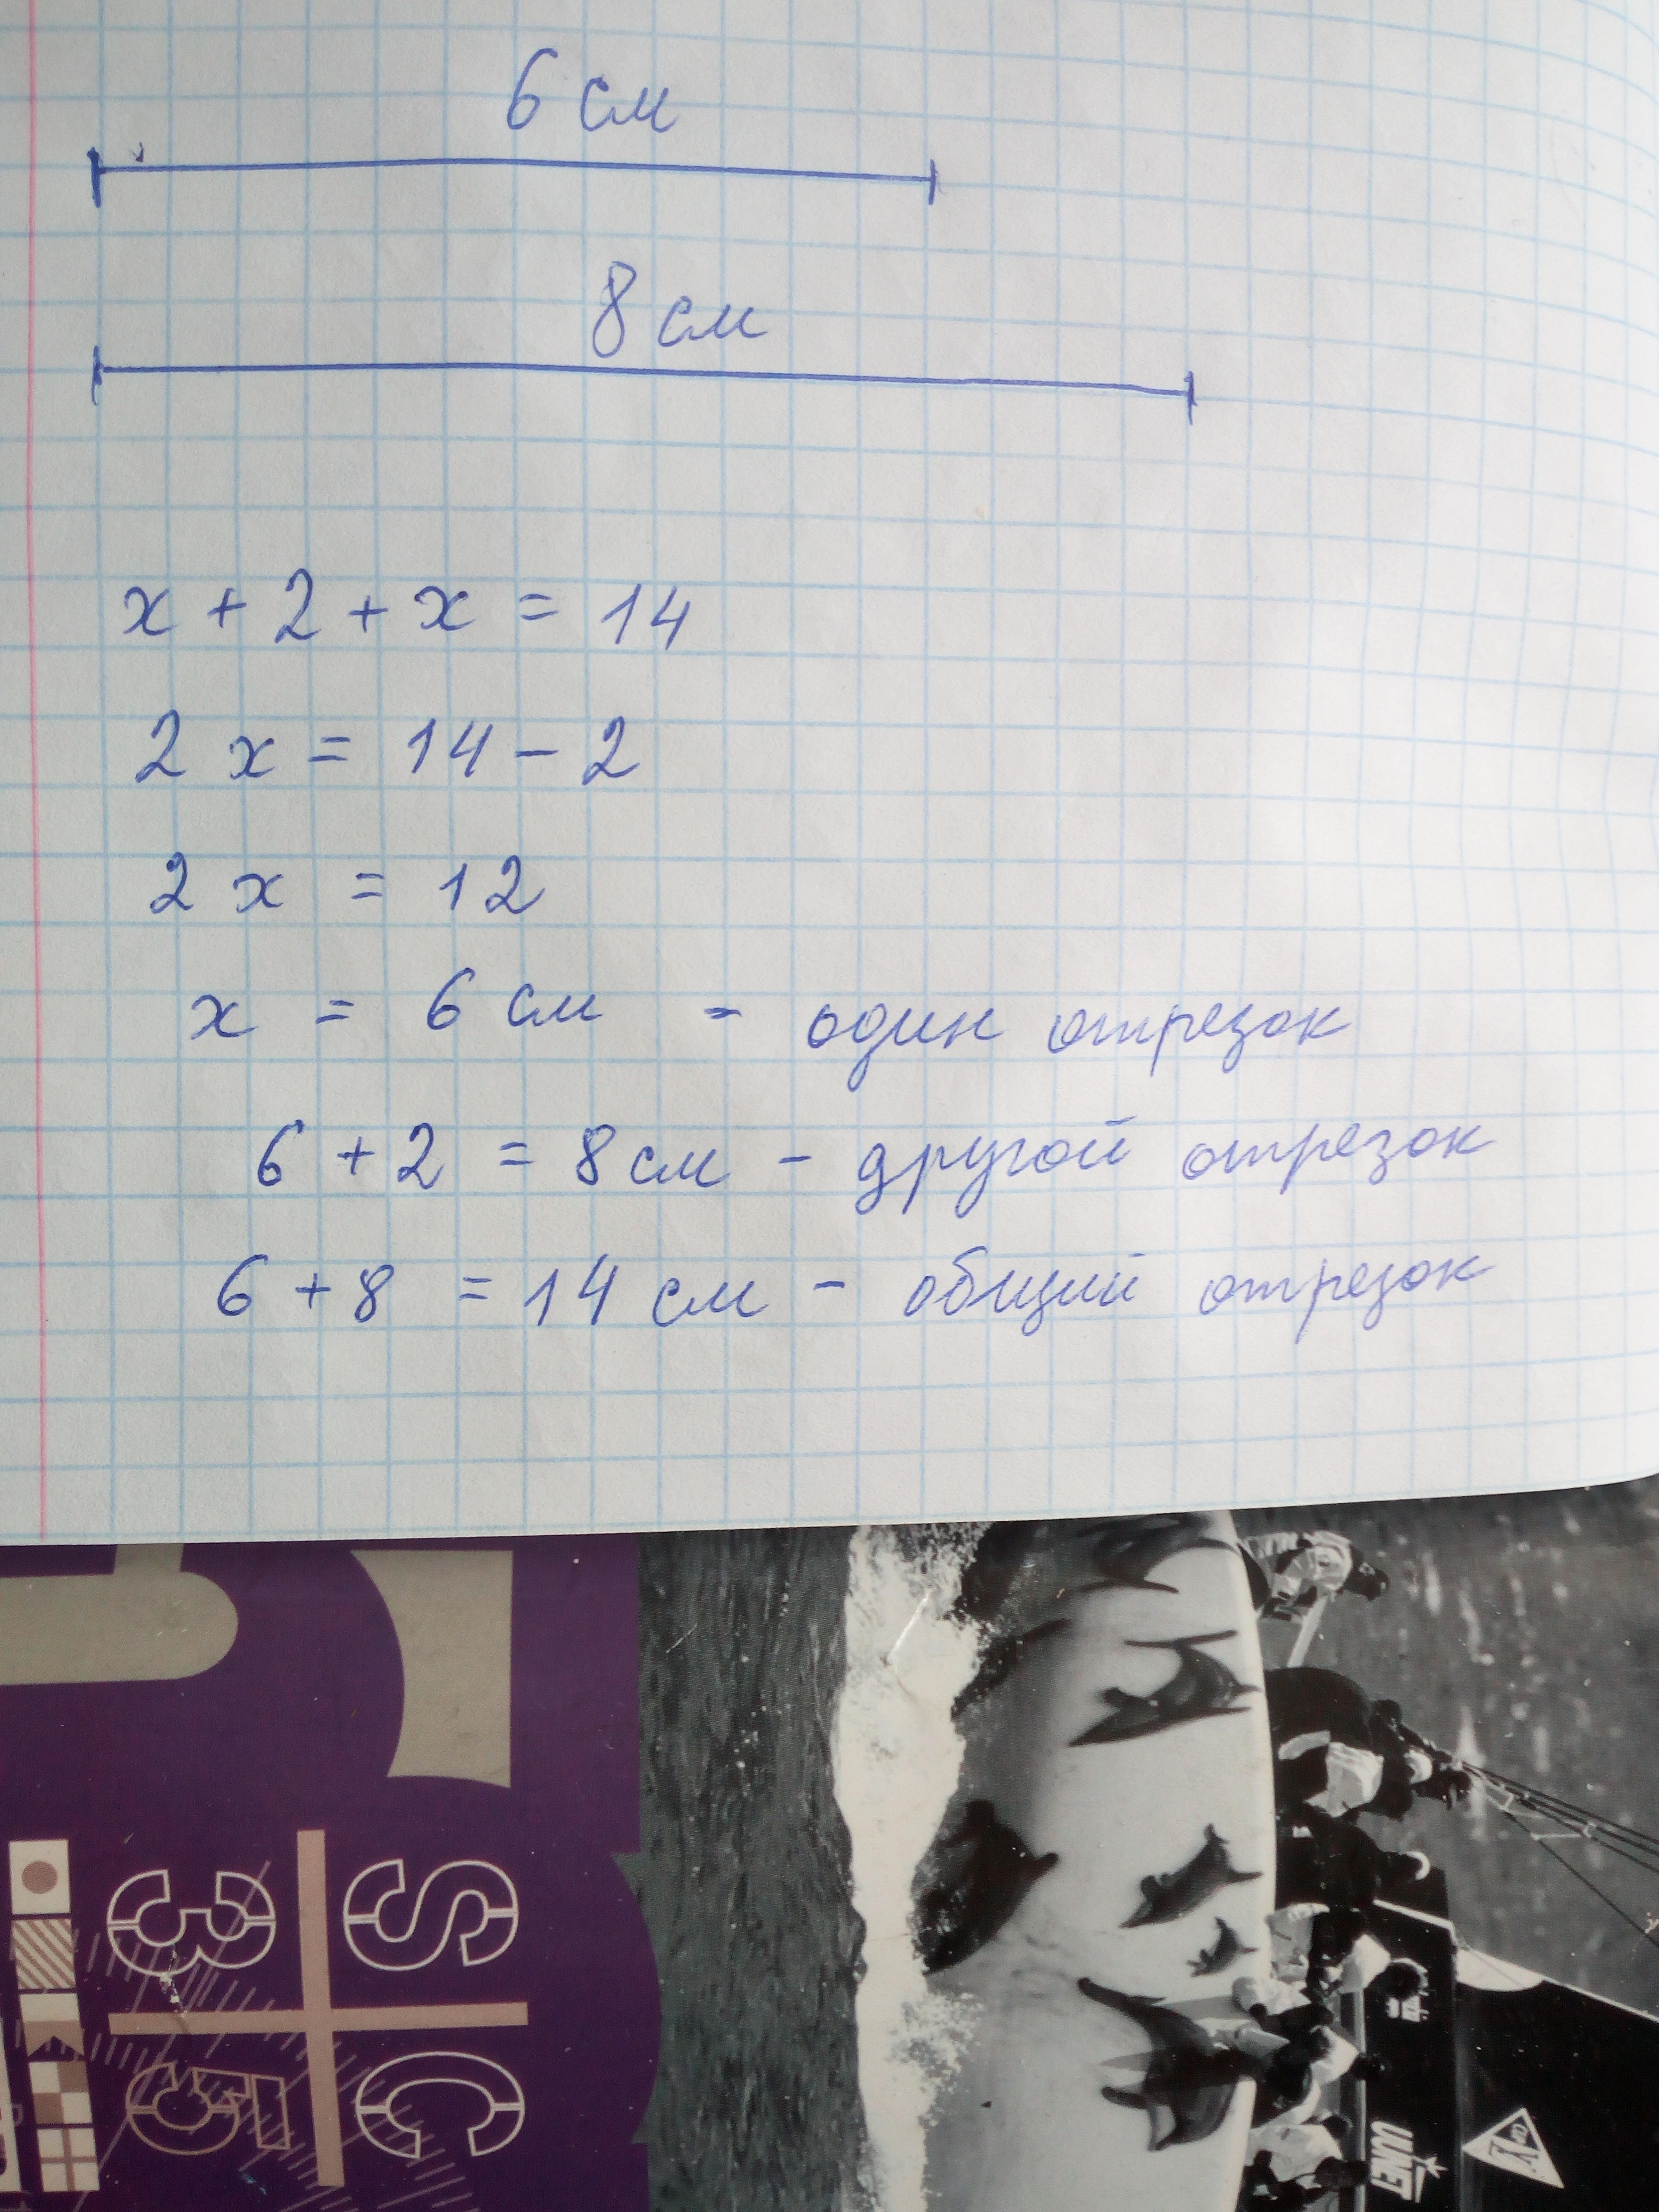 6 см
8 см
x + 2 + x = 14
2 x = 14 - 2
2 x = 12
x = 6 см - один отрезок
6 + 2 = 8 см - другой отрезок
6 + 8 = 14 см - общий отрезок
S C
3 5